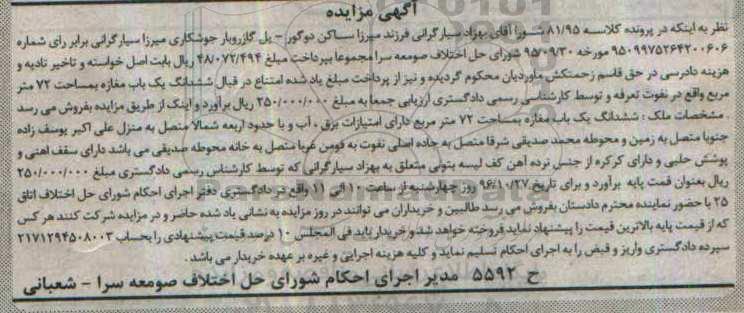 آگهی مزایده
نظر به اینکه در پرونده کلاسه ۸۱/۹۵ شورا آقای بهزاد سیارگرانی فرزند میرزا ساکن دوگور - پل گازروبار جوشکاری میرزا سیارگرانی برابر رای شماره
۹۵۰۹۹۷۵۲۶۴۲۰۰۶۰۶ مورخه ۹۵/۰۹/۳۰ شورای حل اختلاف صومعه سرا مجموعا بپرداخت مبلغ ۴۸/۰۷۲/۴۹۴ ریال بابت اصل خواسته و تاخیر تادیه و
هزینه دادرسی در حق قاسم زحمتکش ماوردیان محکوم گردیده و نیز از پرداخت مبلغ یاد شده امتناع در قبال ششدانگ یک باب مغازه بمساحت ۷۲ متر
مربع واقع در نفوت تعرفه و توسط کارشناسی رسمی دادگستری ارزیابی جمعا به مبلغ ۲۵۰/۰۰۰/۰۰۰ ریال برآورد و اینک از طریق مزایده بفروش می رسد
. مشخصات ملک : ششدانگ یک باب مغازه بمساحت ۷۲ متر مربع دارای امتیازات برق ، آب و با حدود اربعه شمالا متصل به منزل علی اکبر یوسف زاده
جنوبا متصل به زمین و محوطه محمد صدیقی شرقا متصل به جاده اصلی نفوت به فومن غربا متصل به خانه محوطه صدیقی می باشد دارای سقف اهنی و
پوشش حلبی و دارای کرکره از جنس نرده آهن کف لیسه بتونی متعلق به بهزاد سیارگرانی که توسط کارشناس رسمی دادگستری مبلغ ۲۵۰/۰۰۰/۰۰۰
ریال بعنوان قمت پایه برآورد و برای تاریخ ۹۶/۱۰/۲۷ روز چهارشنبه از ساعت ۱۰ الی ۱۱ واقع در دادگستری دفتر اجرای احکام شورای حل اختلاف اتاق
۲۵ با حضور نماینده محترم دادستان بفروش می رسد طالبین و خریداران می توانند در روز مزایده به نشانی یاد شده حاضر و در مزایده شرکت کنند هر کس
که از قیمت پایه بالاترین قیمت را پیشنهاد نماید فروخته خواهد شد و خریدار باید فی المجلس ۱۰ درصد قیمت پیشنهادی را بحساب ۲۱۷۱۲۹۴۵۰۸۰۰۳
سپرده دادگستری واریز و قبض را به اجرای احکام تسلیم نماید و کلیه هزینه اجرایی و غیره بر عهده خریدار می باشد .
ح ۵۵۹۲ مدیر اجرای احکام شورای حل اختلاف صومعه سرا - شعبانی